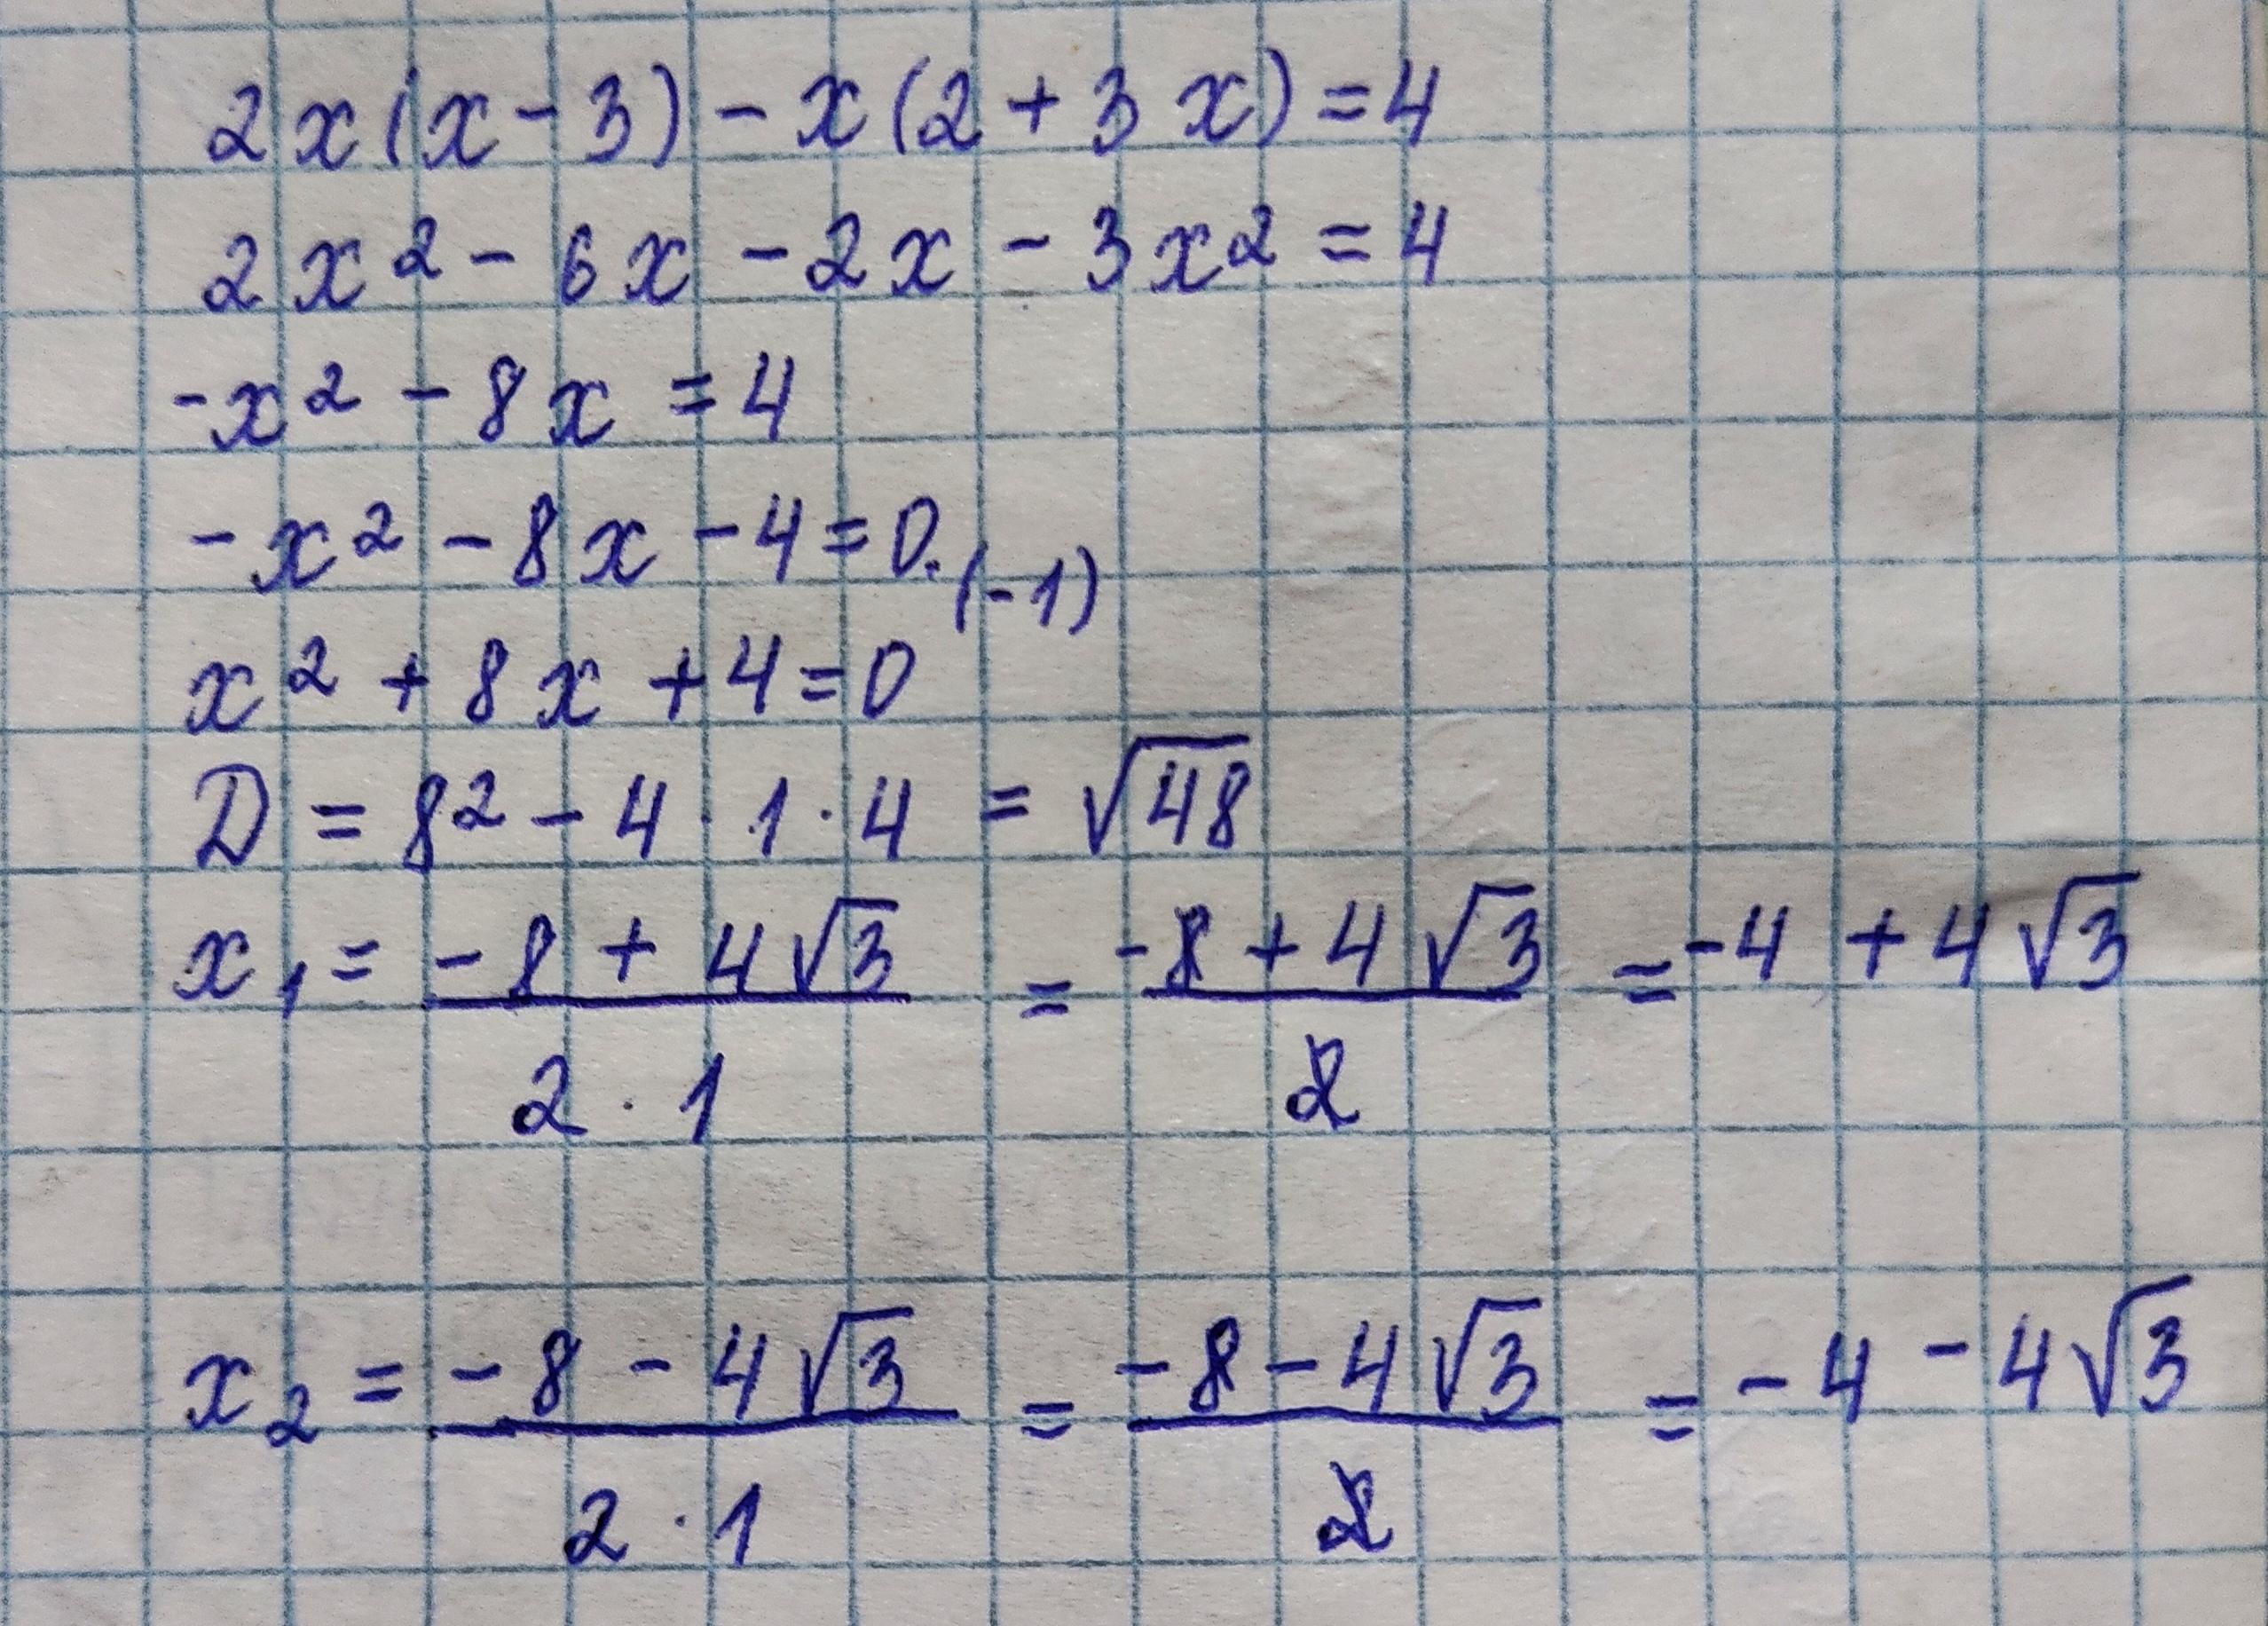 2x(x-3)-x(2+3x)=4
2x²-6x-2x-3x²=4
-x²-8x=4
-x²-8x-4=0·(-1)
x²+8x+4=0
D=8²-4·1·4=√48
x₁=(-8+4√3)/(2·1)=(-8+4√3)/2=-4+4√3
x₂=(-8-4√3)/(2·1)=(-8-4√3)/2=-4-4√3